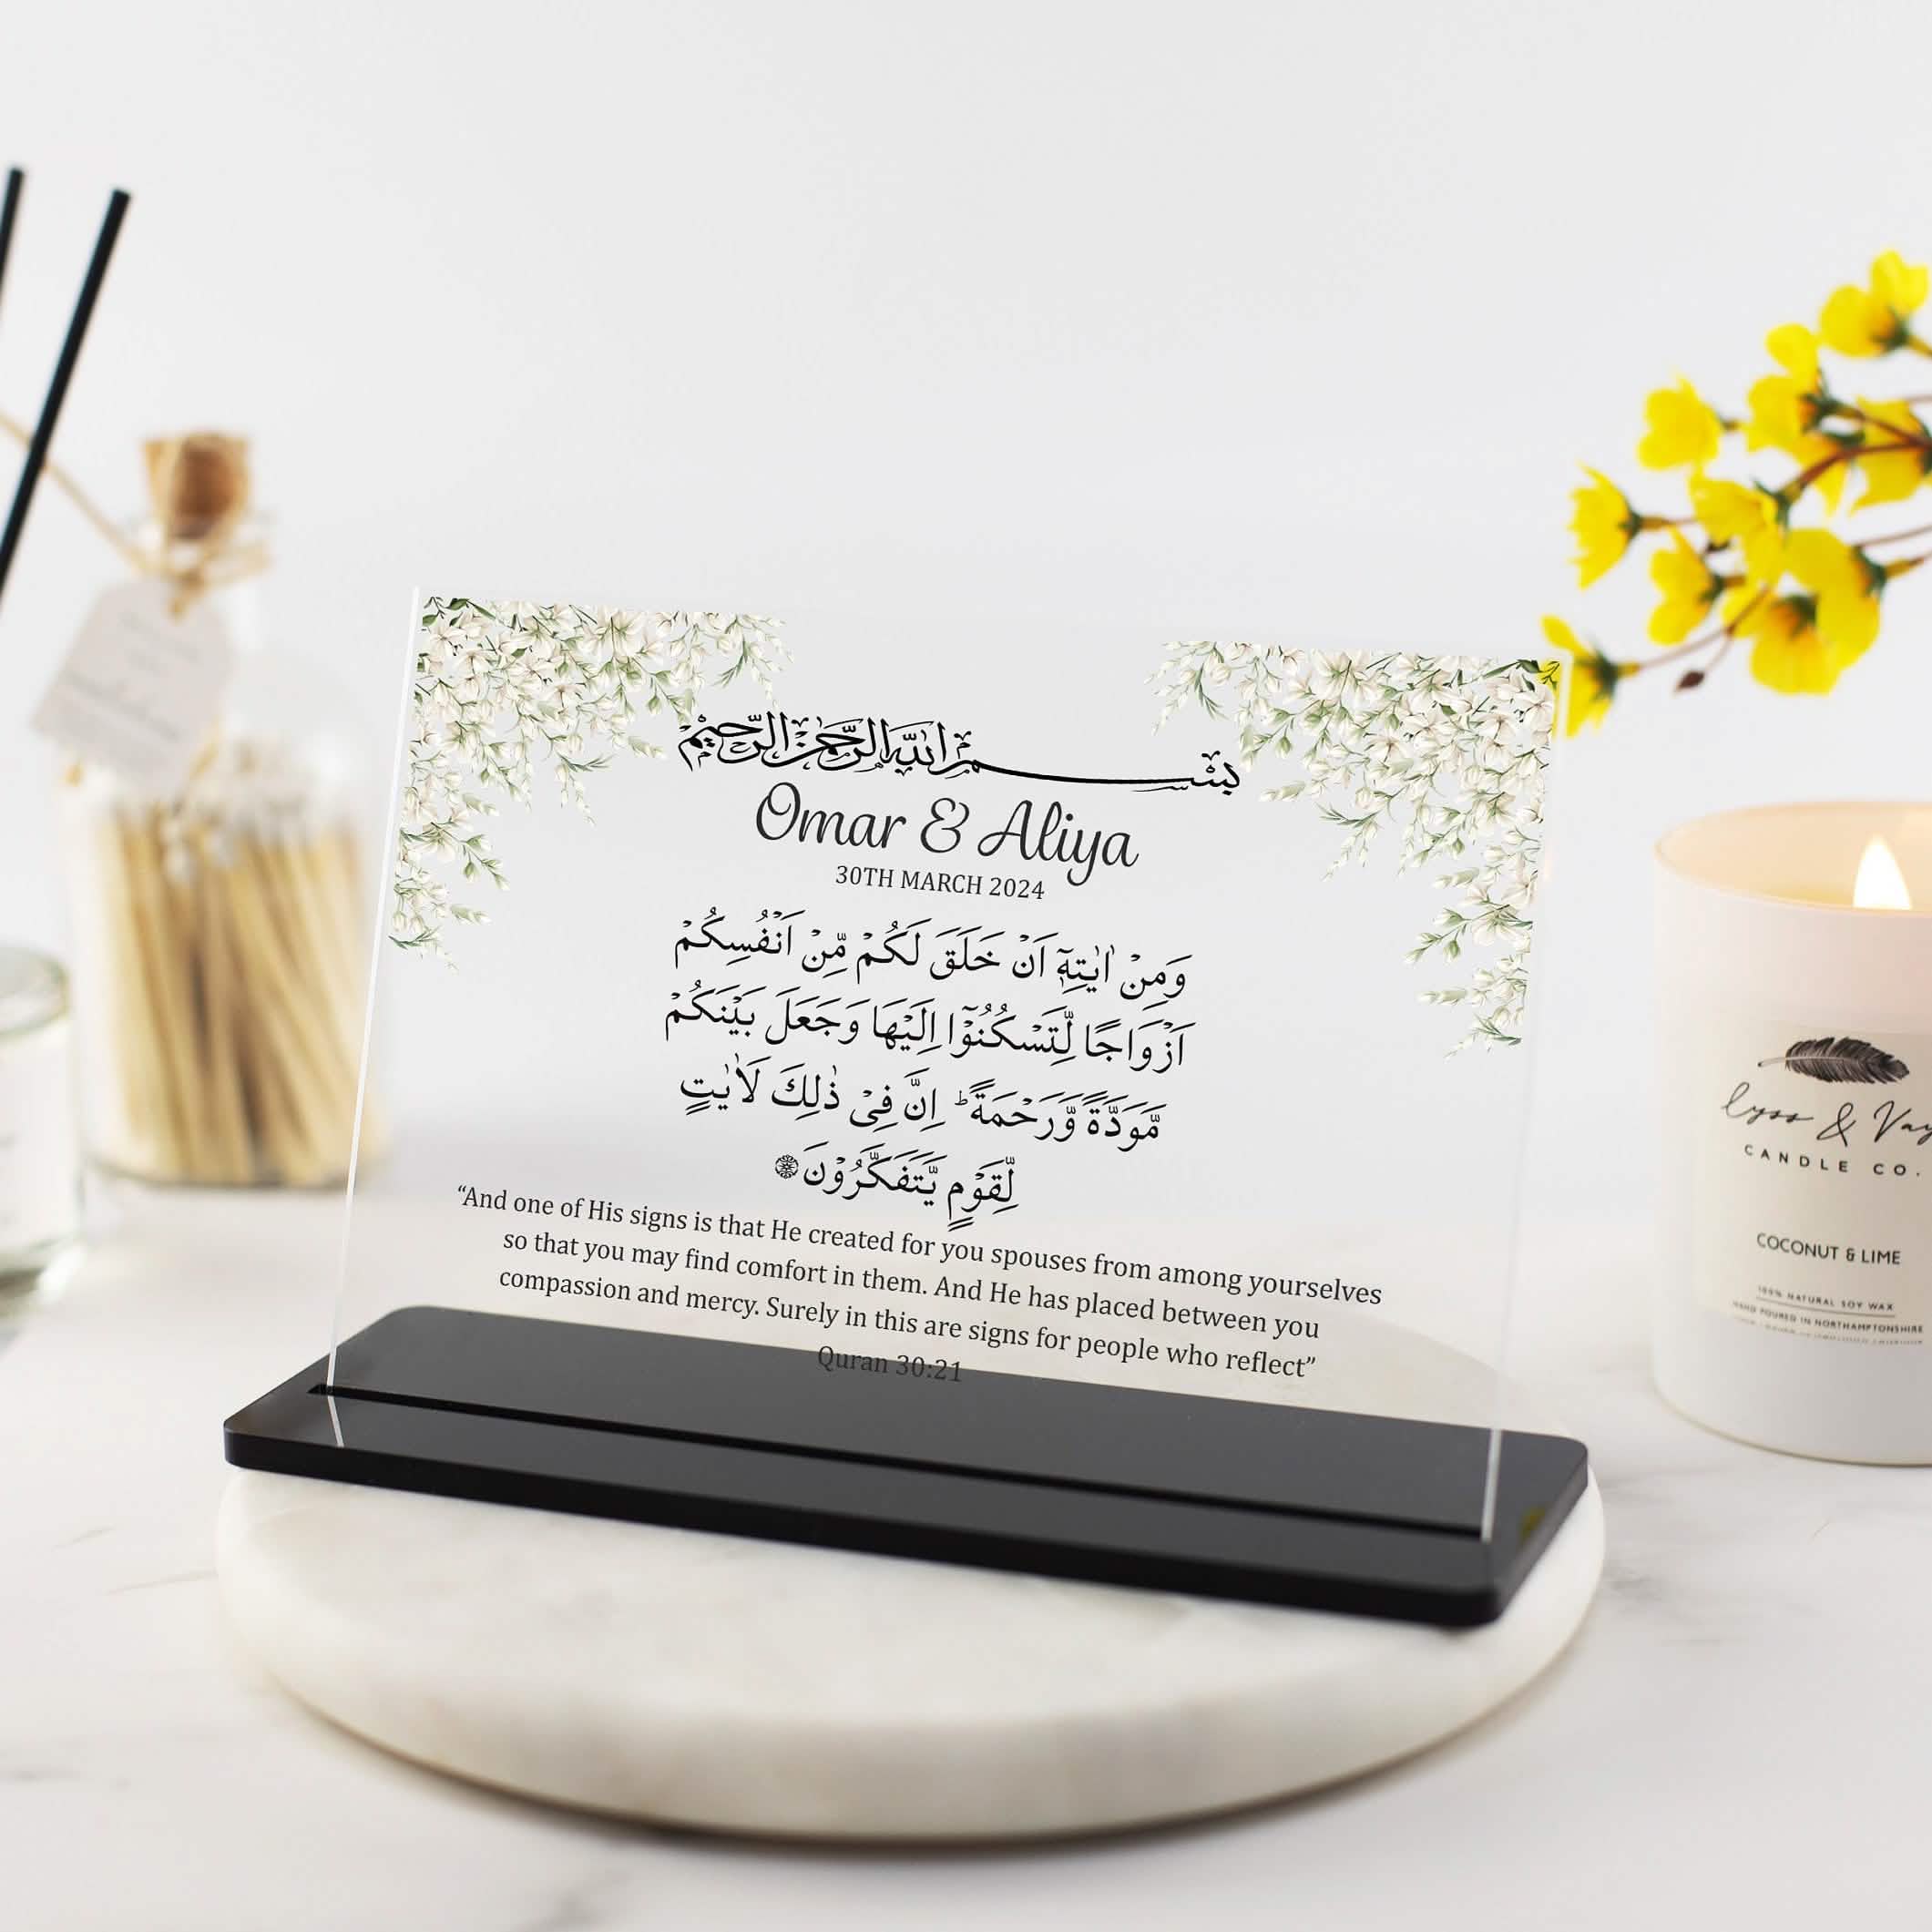 بِسْمِ اللَّهِ الرَّحْمَنِ الرَّحِيمِ
Omar & Aliya
30TH MARCH 2024
وَمِنْ اٰيٰتِهٖٓ اَنْ خَلَقَ لَكُمْ مِّنْ اَنْفُسِكُمْ
اَزْوَاجًا لِّتَسْكُنُوْٓا اِلَيْهَا وَجَعَلَ بَيْنَكُمْ
مَّوَدَّةً وَّرَحْمَةً ؕ اِنَّ فِيْ ذٰلِكَ لَاٰيٰتٍ
لِّقَوْمٍ يَّتَفَكَّرُوْنَ
“And one of His signs is that He created for you spouses from among yourselves
so that you may find comfort in them. And He has placed between you
compassion and mercy. Surely in this are signs for people who reflect”
Quran 30:21
lyss & Vay
CANDLE CO.
COCONUT & LIME
100% NATURAL SOY WAX
HAND POURED IN NORTHAMPTONSHIRE